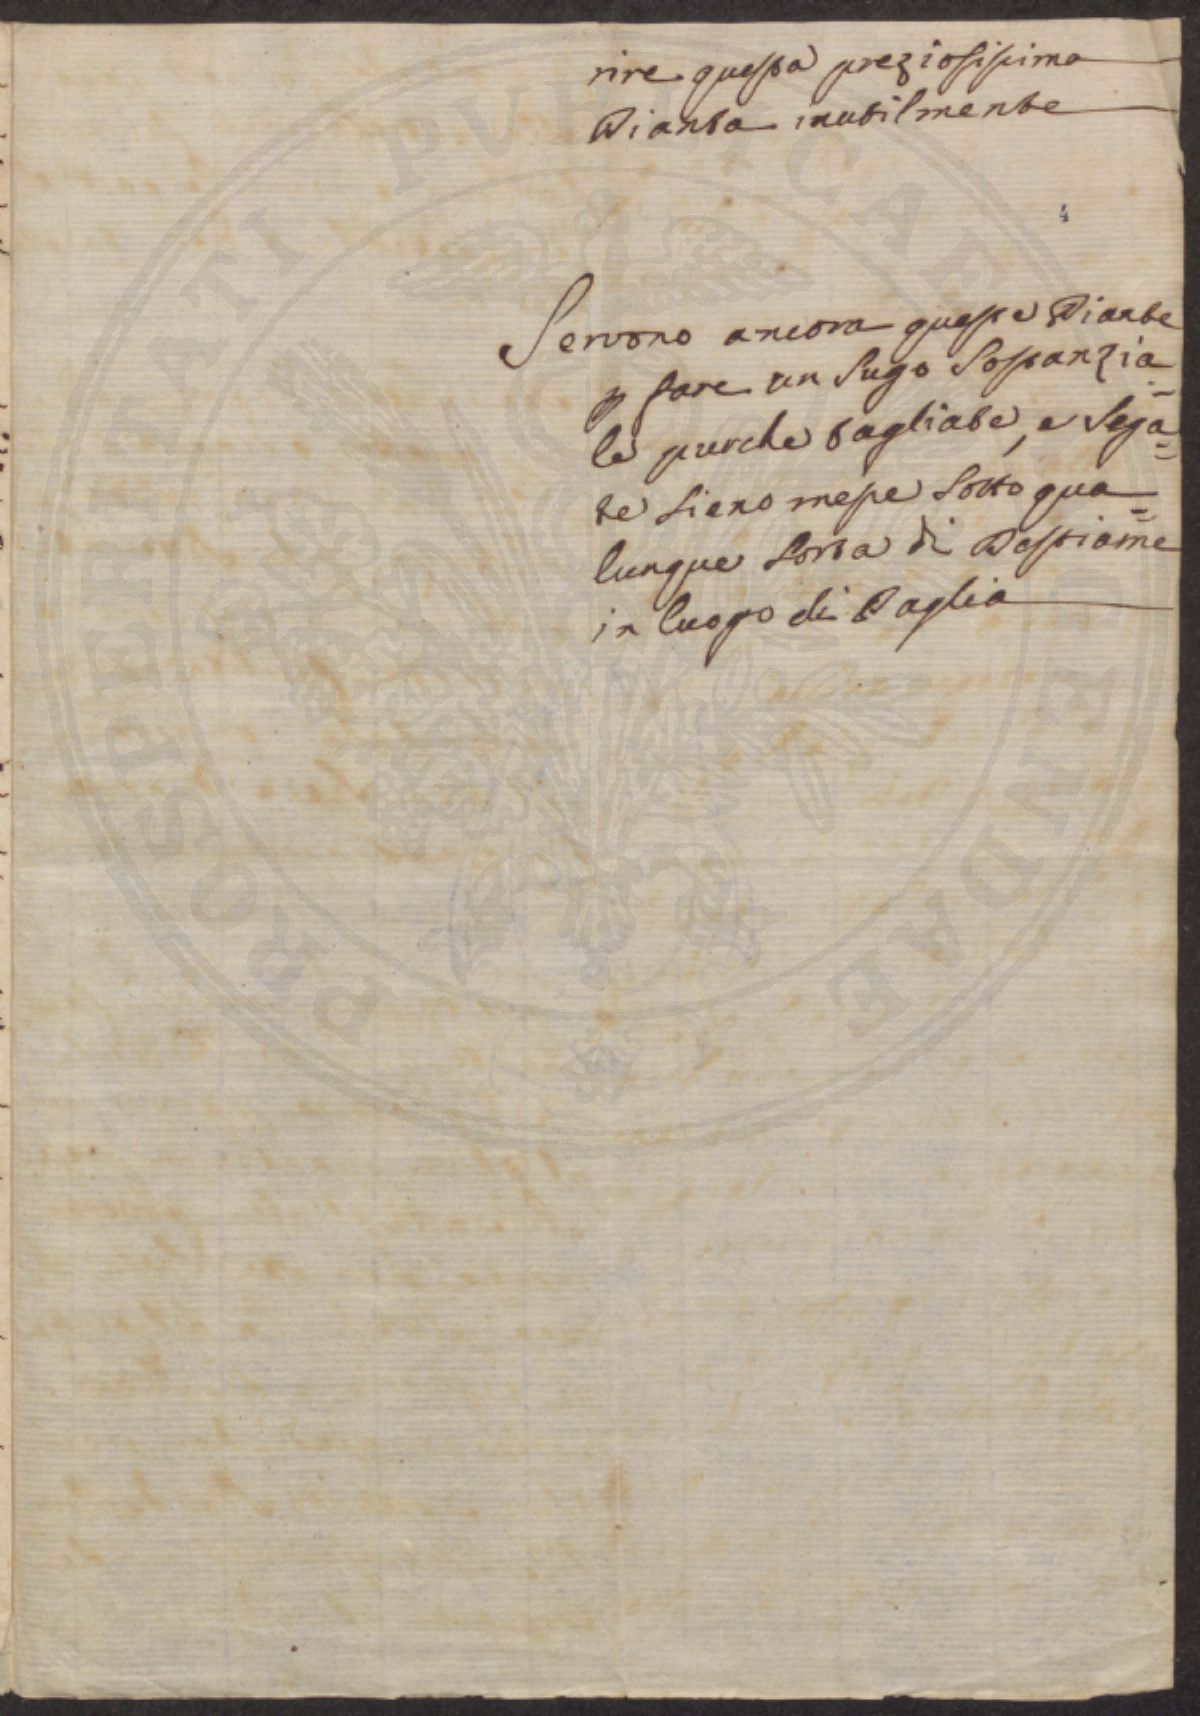 rire questa preziosissima
Pianta inutilmente
4
Servono ancora queste Piante
p fare un sugo sostanzia=
le purche tagliate, e sega=
te sieno messe sotto qua=
lunque sorta di Bestiame
in luogo di Paglia
PROSPERITATI PUBLICAE AUGENDAE